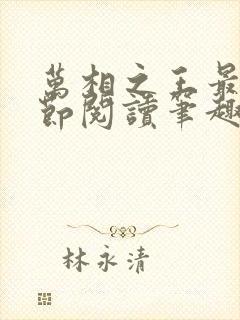 萬相之王最
節閱讀筆趣
林永清